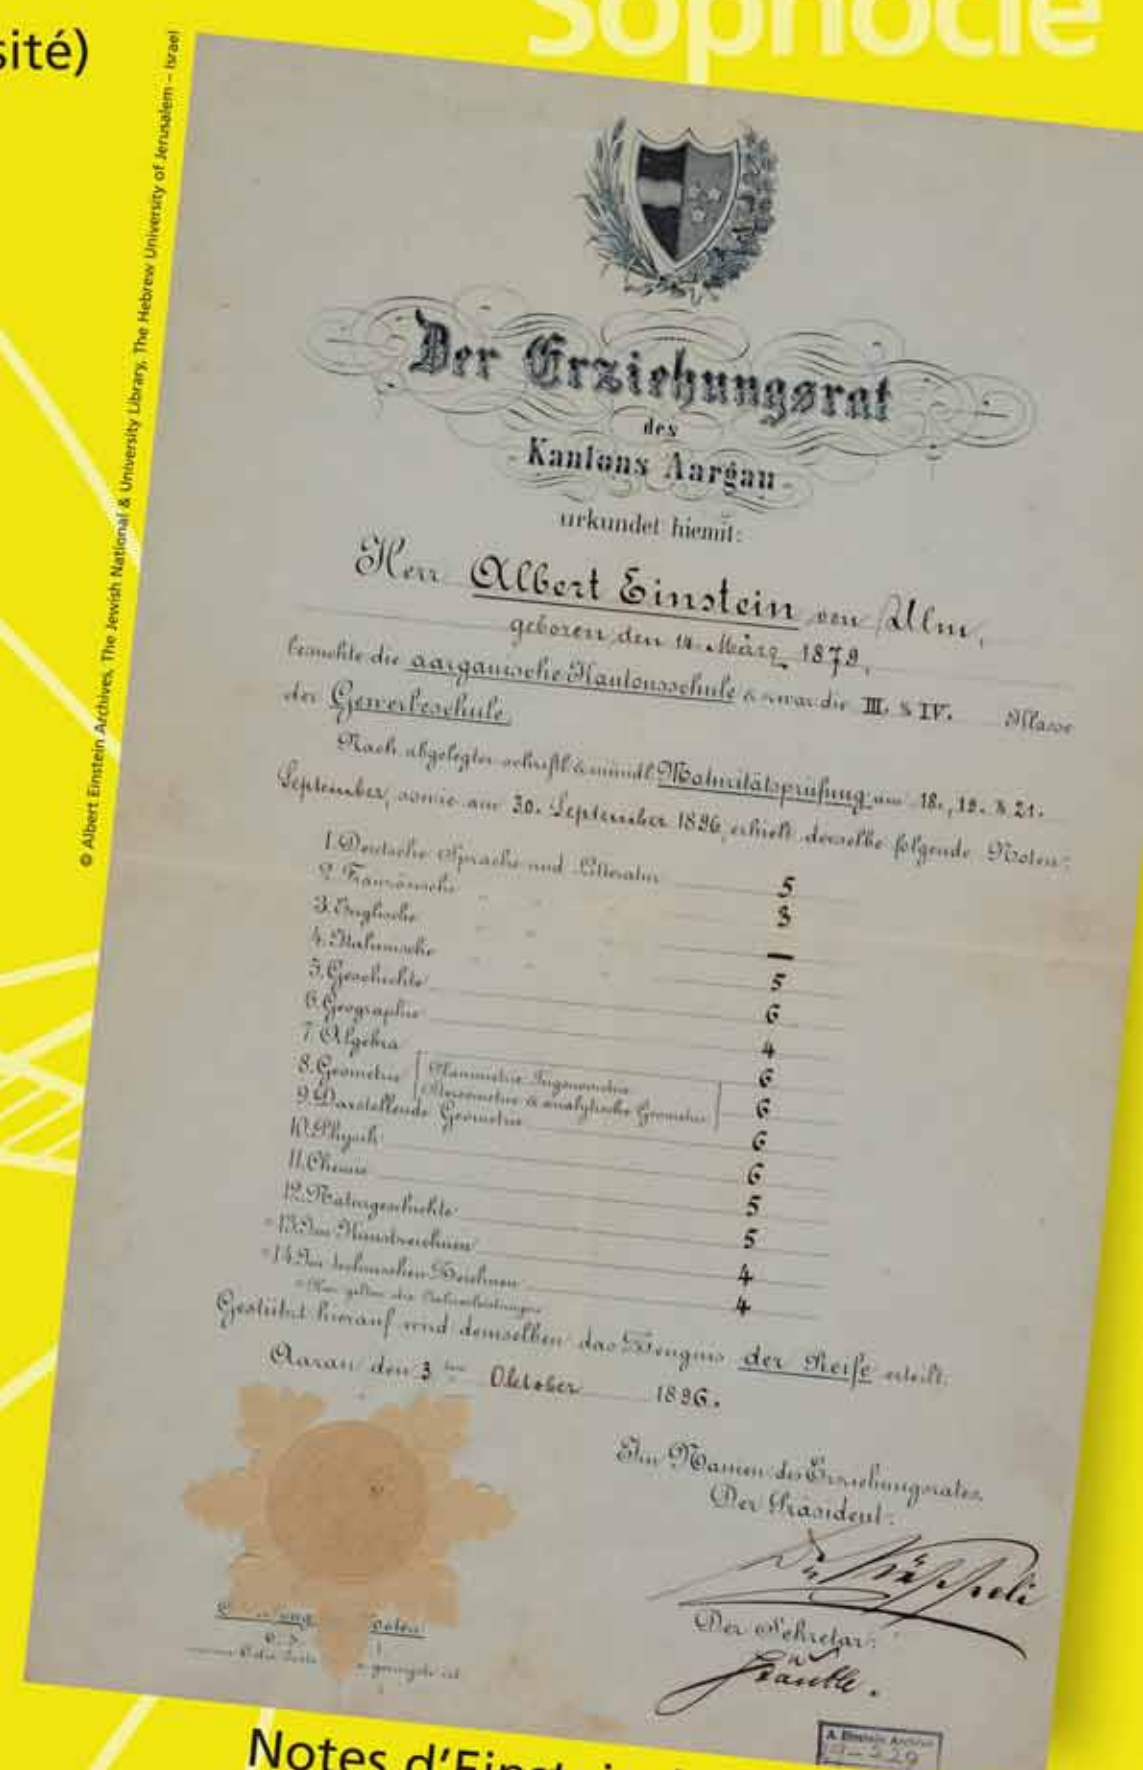 Sophocle
sité)
© Albert Einstein Archives, The Jewish National & University Library, The Hebrew University of Jerusalem – Israel
Der Erziehungsrat
des
Kantons Aargau
urkundet hiemit:
Herr Albert Einstein von Ulm,
geboren den 14. März 1879,
besuchte die aargauische Kantonsschule & zwar die III. & IV. Klasse
der Gewerbeschule.
Nach abgelegter schriftl. & mündl. Maturitätsprüfung am 18., 19. & 21.
September, sowie am 30. September 1896, erhielt derselbe folgende Noten:
1. Deutsche Sprache und Litteratur 5
2. Französische " " " 3
3. Englische " " " —
4. Italienische " " " 5
5. Geschichte 6
6. Geographie 4
7. Algebra 6
8. Geometrie (Planimetrie, Trigonometrie, Stereometrie & analytische Geometrie) 6
9. Darstellende Geometrie 6
10. Physik 6
11. Chemie 5
12. Naturgeschichte 5
* 13. Im Kunstzeichnen 4
* 14. Im technischen Zeichnen 4
* Hier gelten die Jahresleistungen.
Gestützt hierauf wird demselben das Zeugnis der Reife erteilt.
Aarau den 3ten Oktober 1896.
Im Namen des Erziehungsrates,
Der Präsident:
Dr. Käppeli
Der Sekretär:
Stäuble.
A. Einstein Archive
Notes d'Einstein